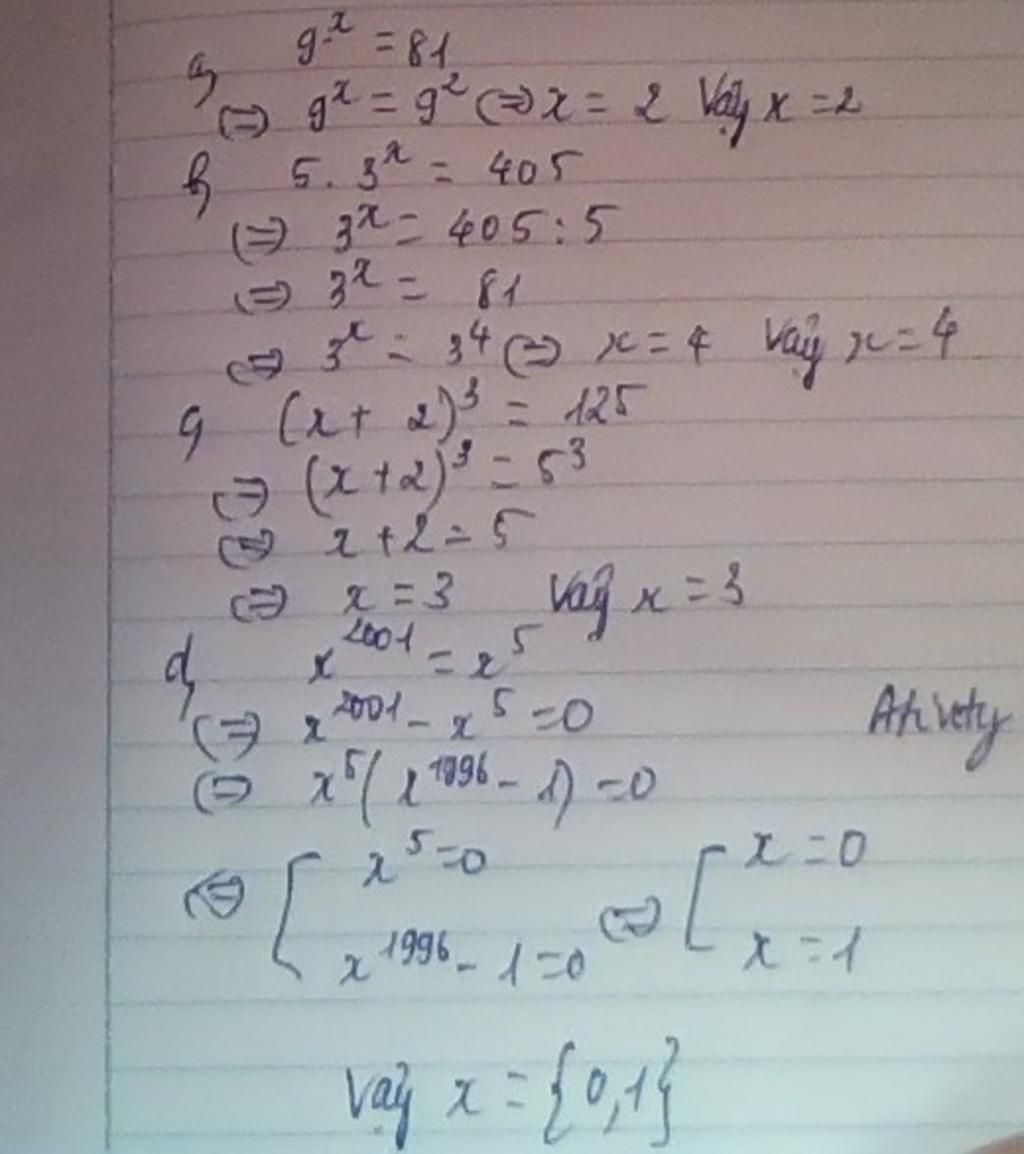 a, 9^x = 81
⇔ 9^x = 9^2 ⇔ x = 2 Vậy x = 2
b, 5. 3^x = 405
⇔ 3^x = 405 : 5
⇔ 3^x = 81
⇔ 3^x = 3^4 ⇔ x = 4 Vậy x = 4
c, (x + 2)^3 = 125
⇔ (x + 2)^3 = 5^3
⇔ x + 2 = 5
⇔ x = 3 Vậy x = 3
d, x^2001 = x^5
⇔ x^2001 - x^5 = 0
⇔ x^5 (x^1996 - 1) = 0
⇔ [ x^5 = 0
x^1996 - 1 = 0 ⇔ [ x = 0
x = 1
Vậy x = {0,1}